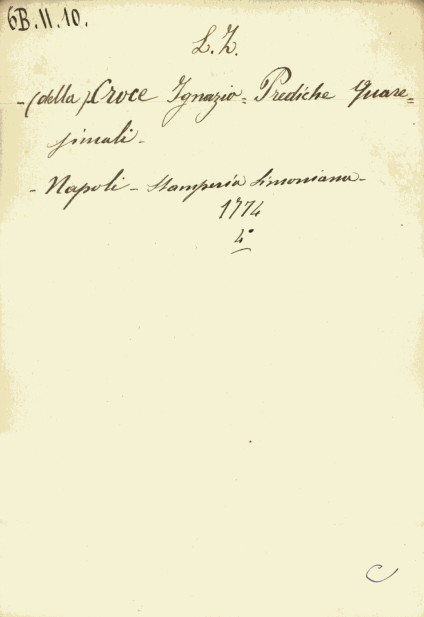 6B.11.10.
L.Z.
- (della) Croce Ignazio = Prediche Quare=
simali -
- Napoli - Stamperia Simoniana -
1774
4°
C